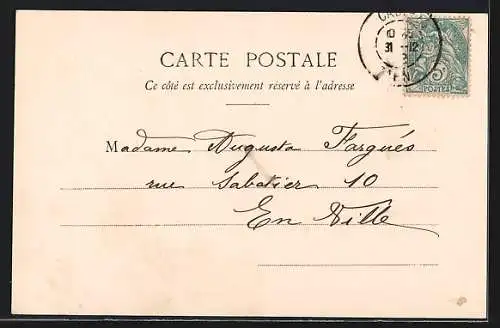 CARTE POSTALE
Ce côté est exclusivement réservé à l'adresse
Madame Augusta Fargués
rue Sabatier 10
En Ville
31 - 12
POSTES